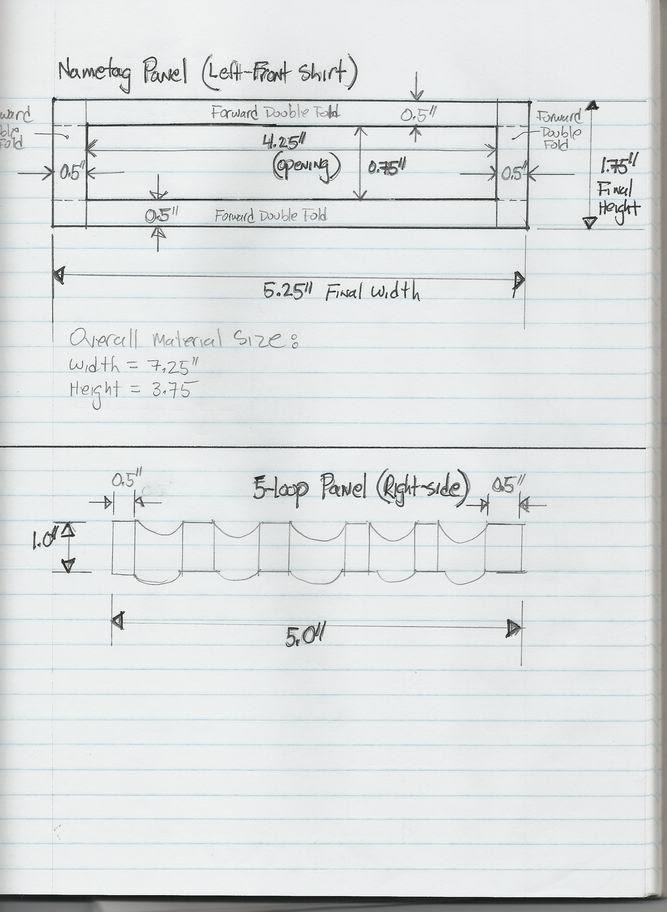 Nametag Panel (Left-Front Shirt)
Forward Double Fold
0.5"
Forward
Double
Fold
4.25"
(opening)
0.75"
0.5"
0.5"
1.75"
Final
Height
0.5"
Forward Double Fold
5.25" Final Width
Overall Material Size:
Width = 7.25"
Height = 3.75
0.5"
5-loop Panel (Right-side)
0.5"
1.0"
5.0"